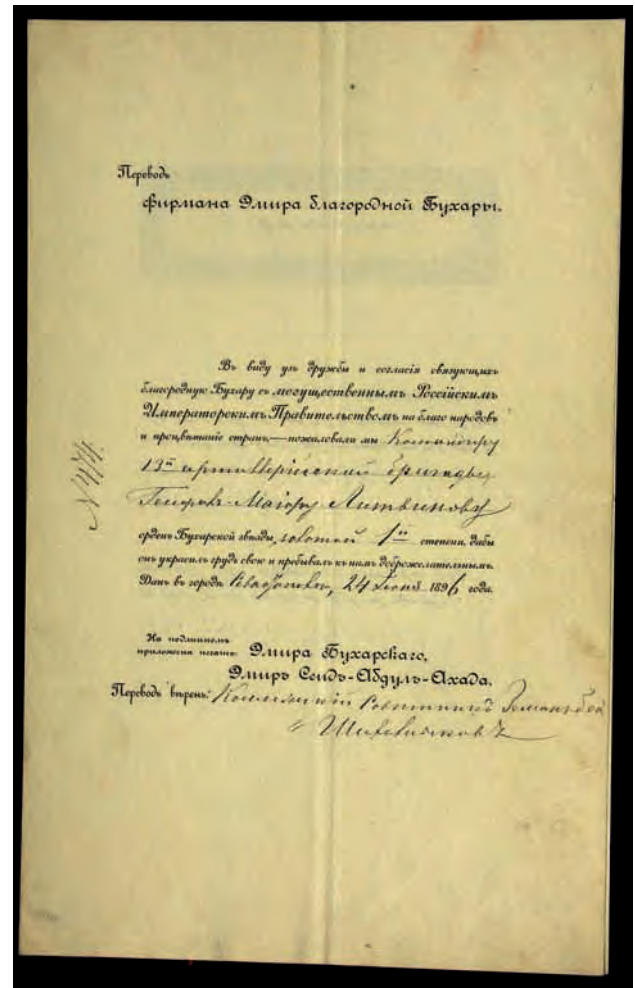 Переводъ
фирмана Эмира благородной Бухары.
Въ виду узъ дружбы и согласія связующихъ
благородную Бухару съ могущественнымъ Россійскимъ
Императорскимъ Правительствомъ на благо народовъ
и процвѣтаніе странъ,—пожаловали мы Командиру
13й артиллерійской бригады
Генералъ-Маіору Литвинову
орденъ Бухарской звѣзды, золотой 1ой степени, дабы
онъ украсилъ грудь свою и пребывалъ къ намъ доброжелательнымъ.
Данъ въ городѣ Севастополѣ, 24 Іюня 1896 года.
На подлинномъ
приложена печать: Эмира Бухарскаго,
Эмиръ Сеидъ-Абдулъ-Ахада.
Переводъ вѣренъ: Коллежскій Совѣтникъ